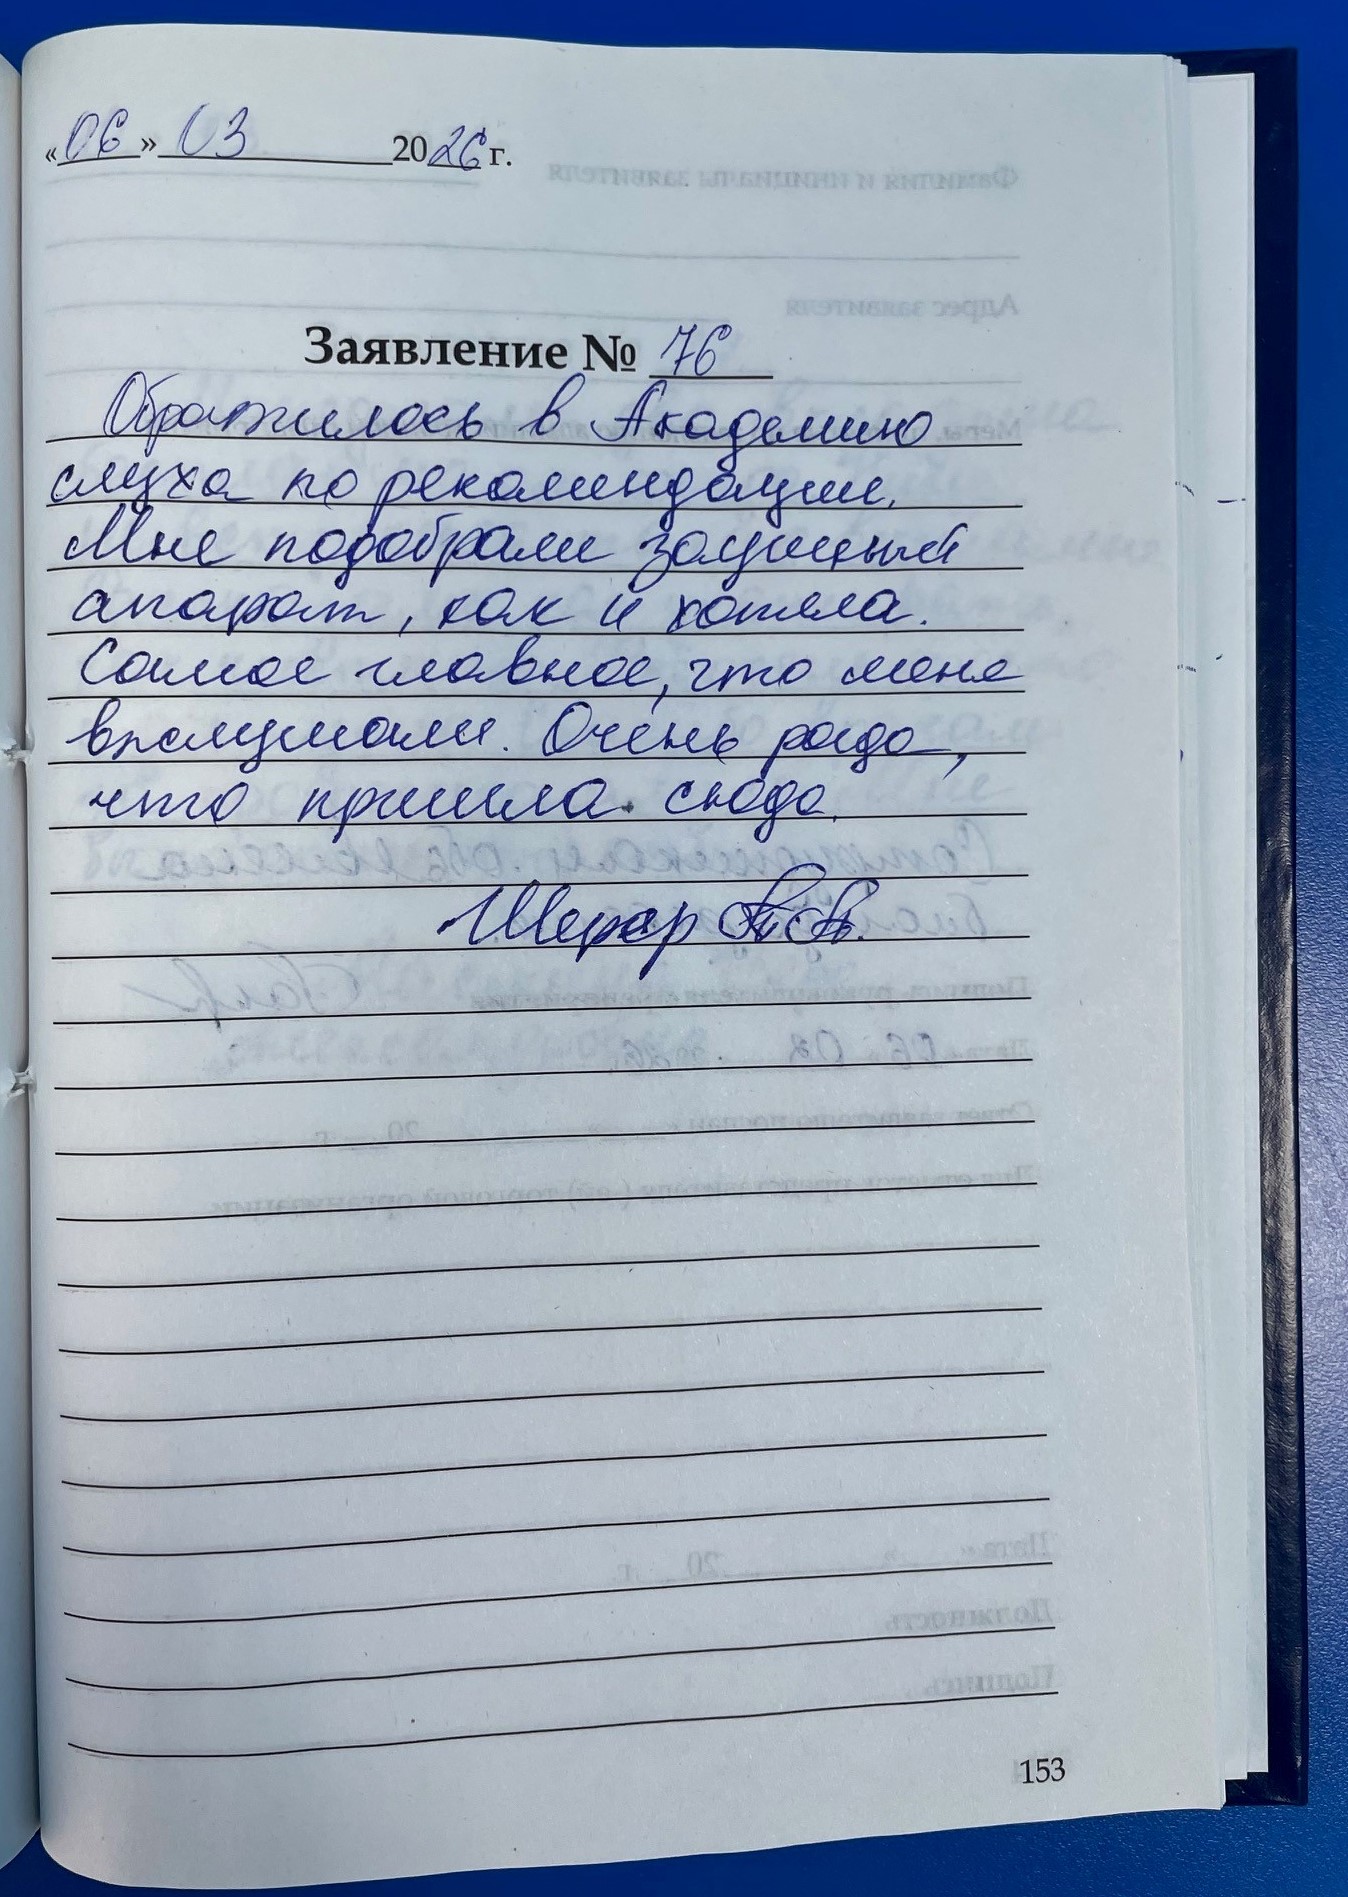 «06» 03 2026 г.
Заявление № 76
Обратилась в Академию
слуха по рекомендации.
Мне подобрали
апарат, как и хотела.
Самое главное, что меня
выслушали. Очень рада,
что пришла сюда.
153